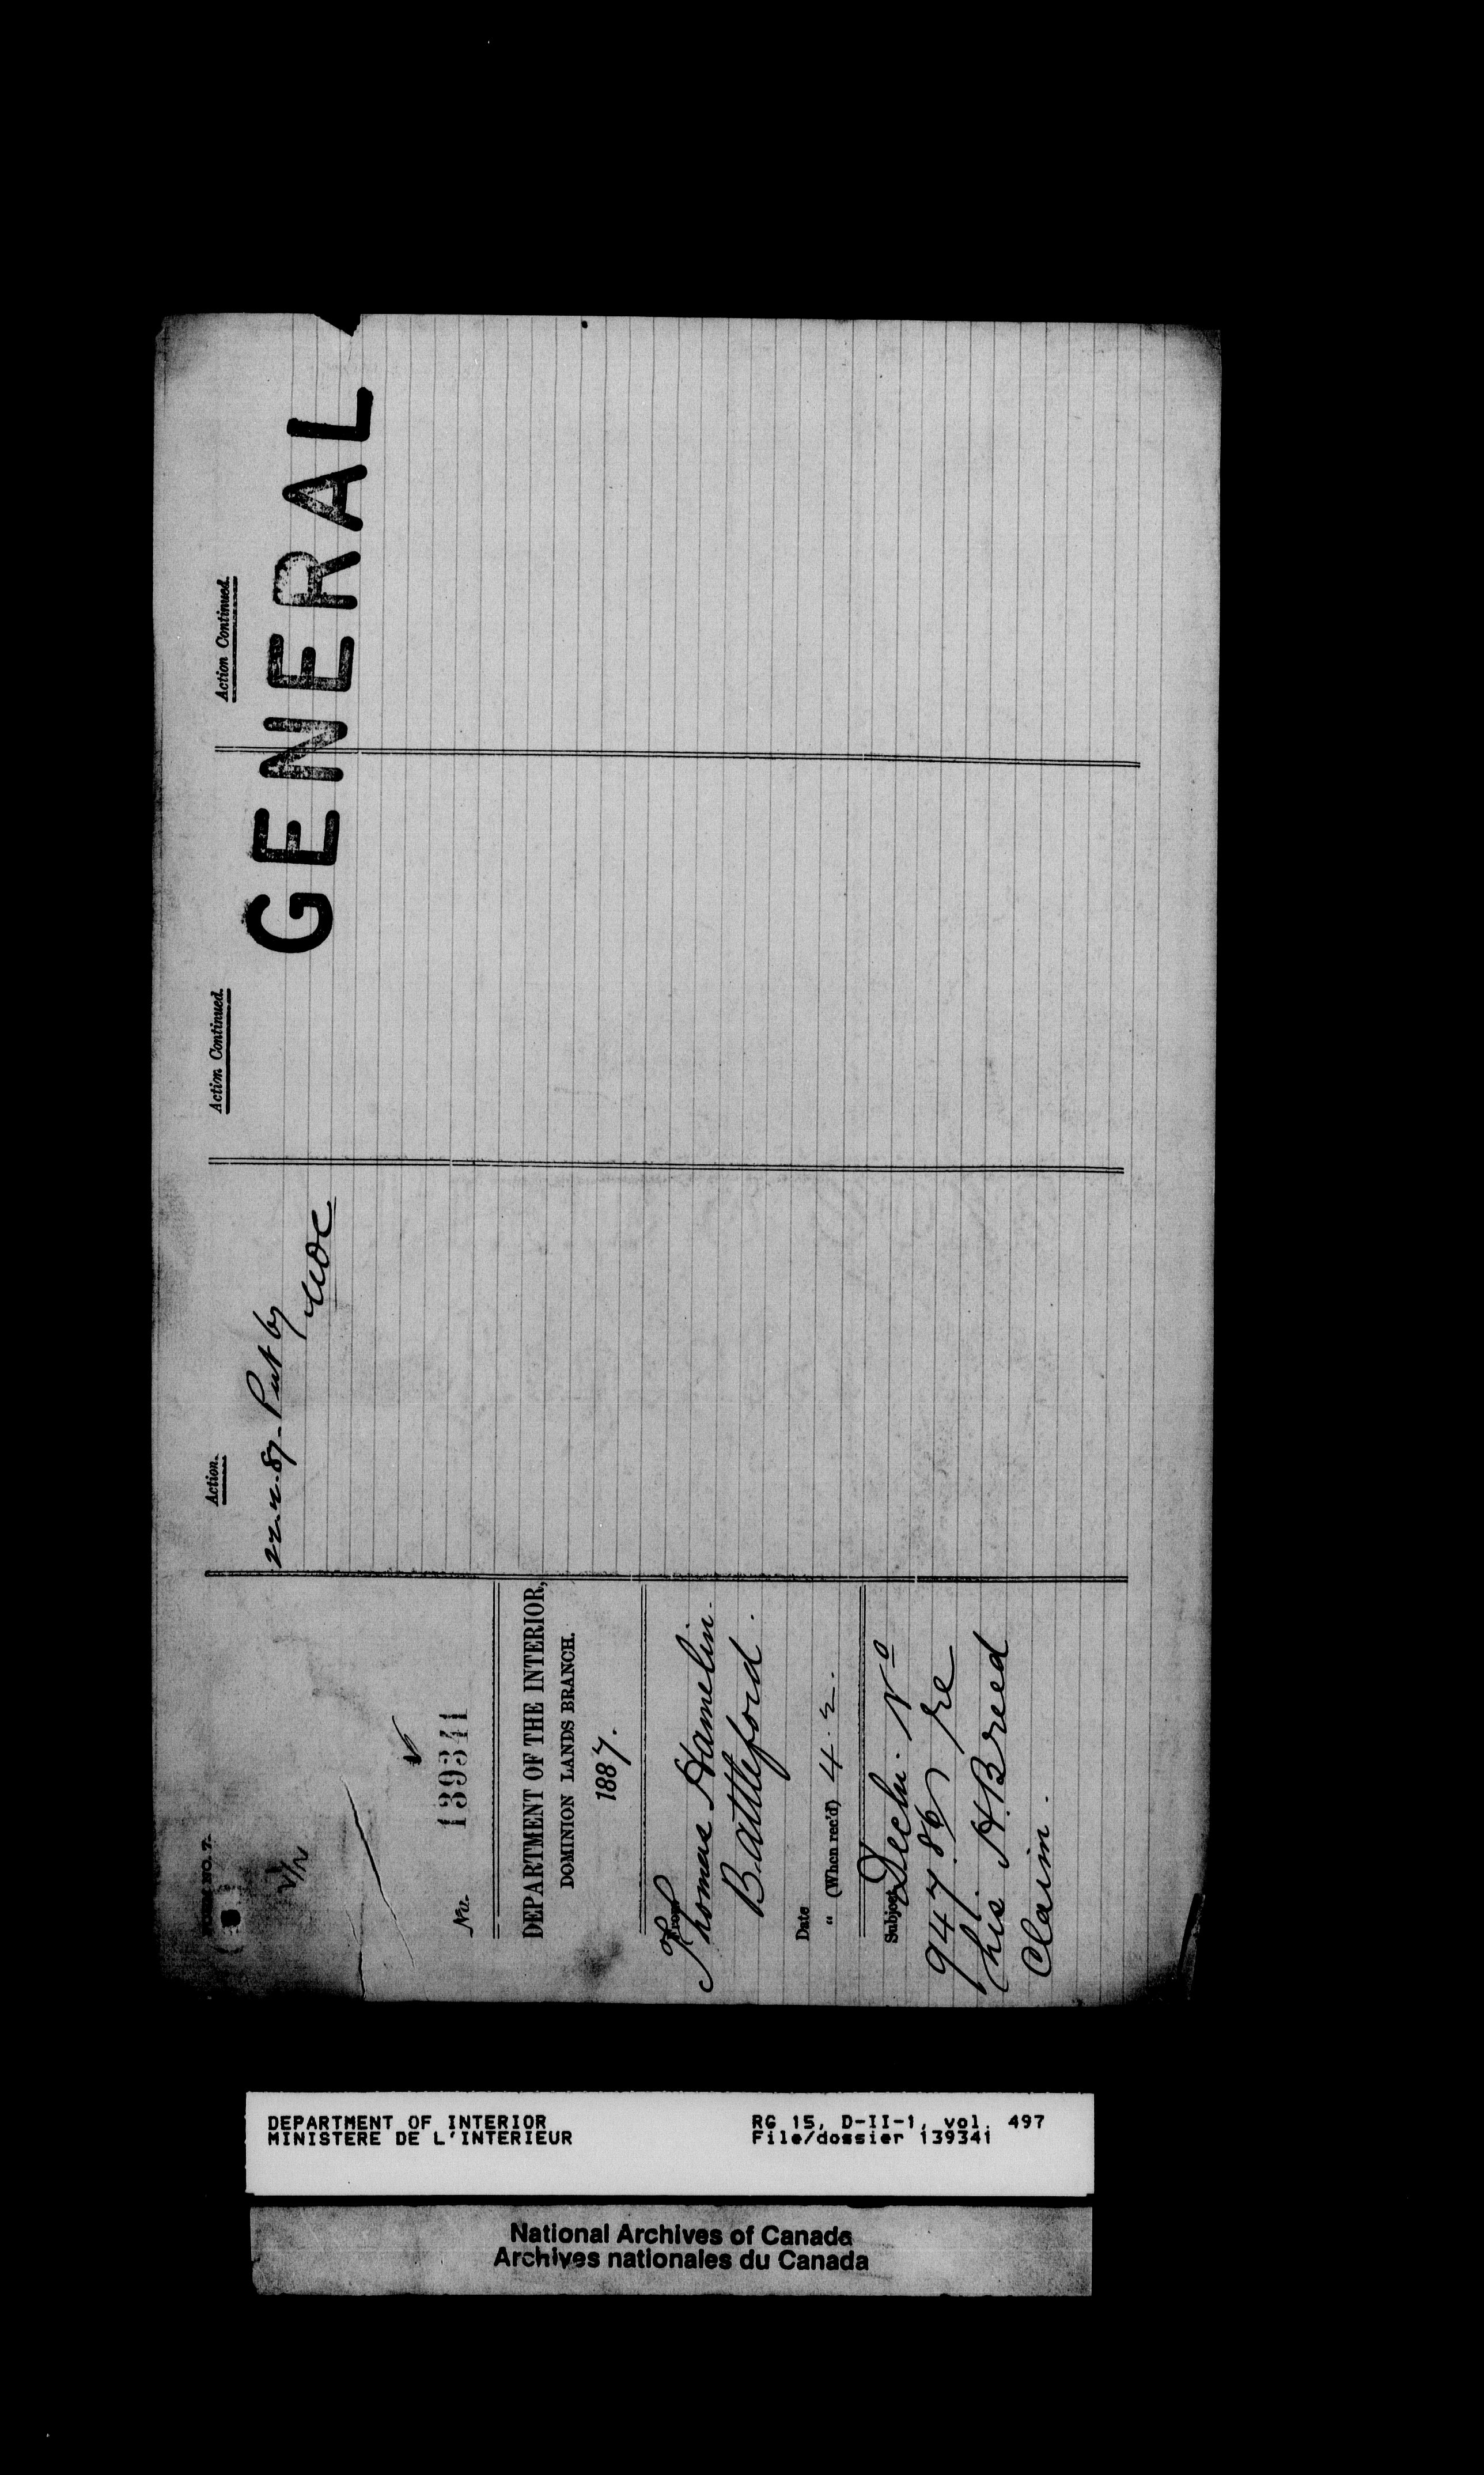 FORM NO. 7.
No. 139341
DEPARTMENT OF THE INTERIOR,
DOMINION LANDS BRANCH.
1887.
From
Thomas Hamelin.
Battleford.
Date
" (When rec'd) 4.2.
Subject, Decln. No
947.86 re
his H.Breed
Claim.
Action.
22.2.87. Put by
Action Continued.
Action Continued.
GENERAL
DEPARTMENT OF INTERIOR
MINISTERE DE L'INTERIEUR
RG 15, D-II-1, vol. 497
File/dossier 139341
National Archives of Canada
Archives nationales du Canada